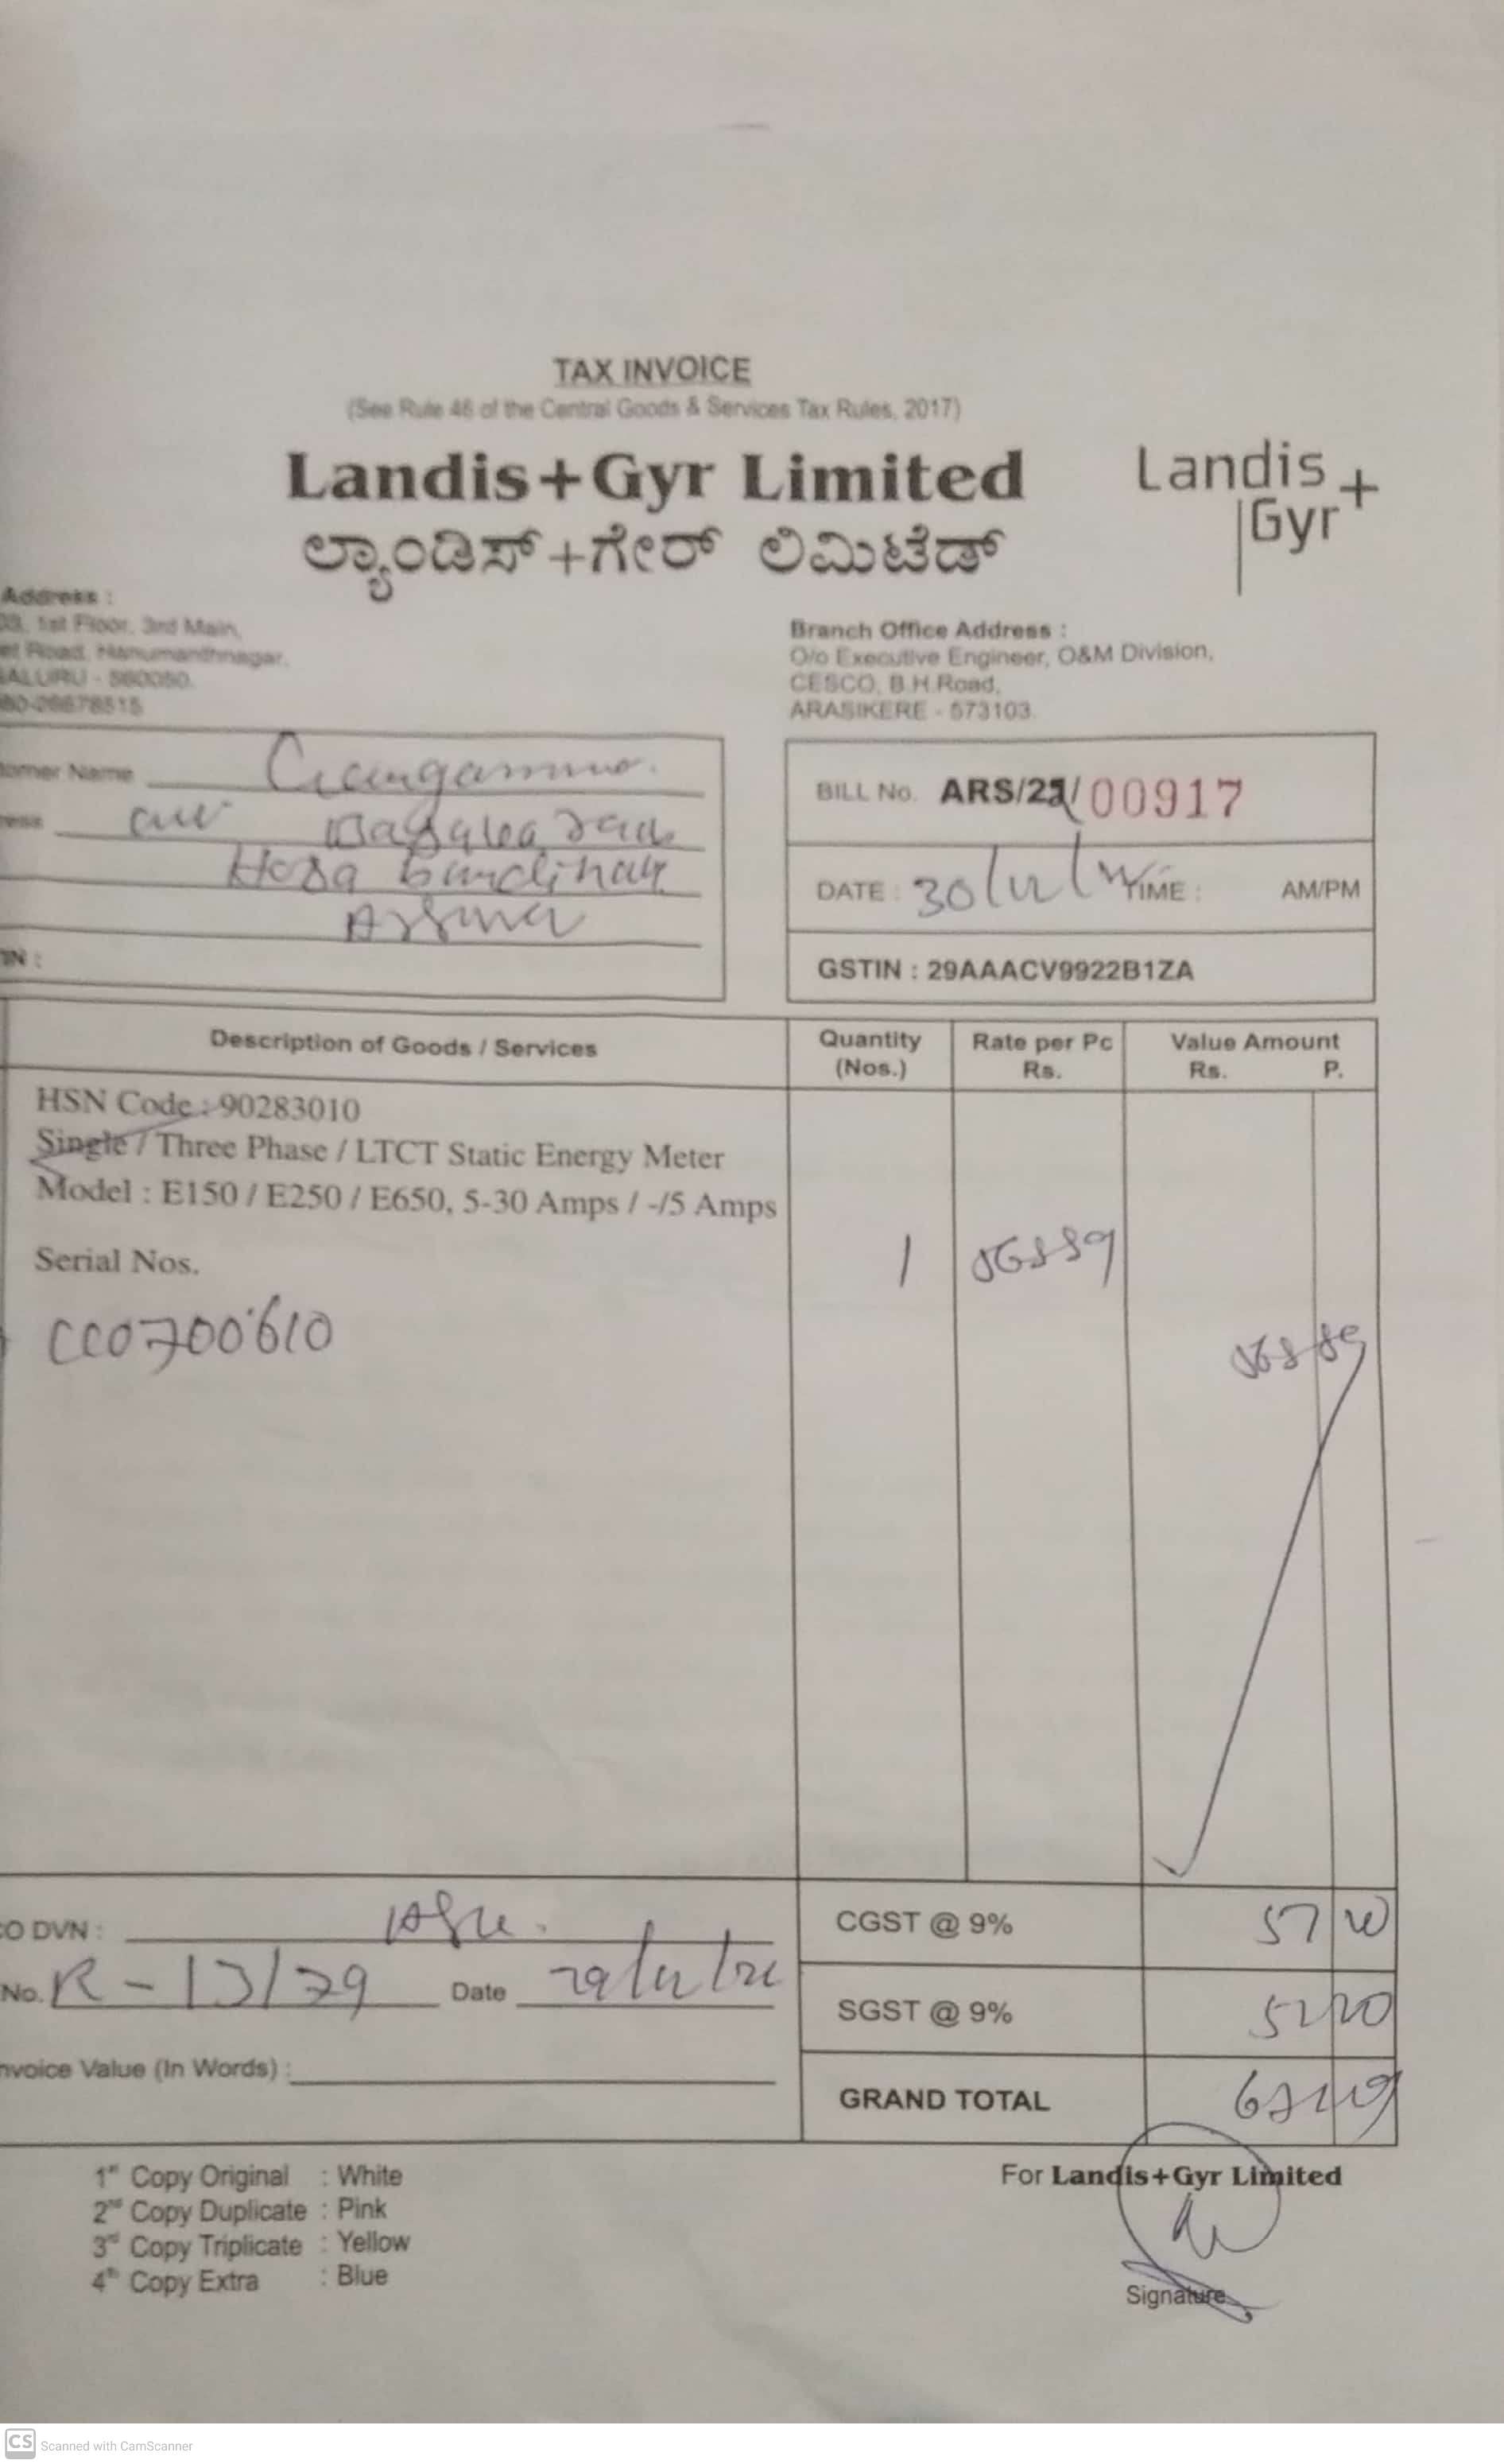 TAX INVOICE
(See Rule 46 of the Central Goods & Services Tax Rules, 2017)
Landis+Gyr Limited
ಲ್ಯಾಂಡಿಸ್+ಗೇರ್ ಲಿಮಿಟೆಡ್
Landis+
Gyr
Address :
1st Floor, 3rd Main,
et Road, Hanumanthnagar,
ALURU - 560050.
80-26678515
Branch Office Address :
O/o Executive Engineer, O&M Division,
CESCO, B.H.Road,
ARASIKERE - 573103.
tomer Name
ress
IN :
BILL No. ARS/22/00917
DATE : 30/12/ TIME : AM/PM
GSTIN : 29AAACV9922B1ZA
Description of Goods / Services
Quantity (Nos.)
Rate per Pc Rs.
Value Amount Rs. P.
HSN Code : 90283010
Single / Three Phase / LTCT Static Energy Meter
Model : E150 / E250 / E650, 5-30 Amps / -/5 Amps
Serial Nos.
1
CC0700610
O DVN :
No. R - 13/29 Date
nvoice Value (In Words) :
CGST @ 9%
SGST @ 9%
GRAND TOTAL
1st Copy Original : White
2nd Copy Duplicate : Pink
3rd Copy Triplicate : Yellow
4th Copy Extra : Blue
For Landis+Gyr Limited
Signature
CS Scanned with CamScanner